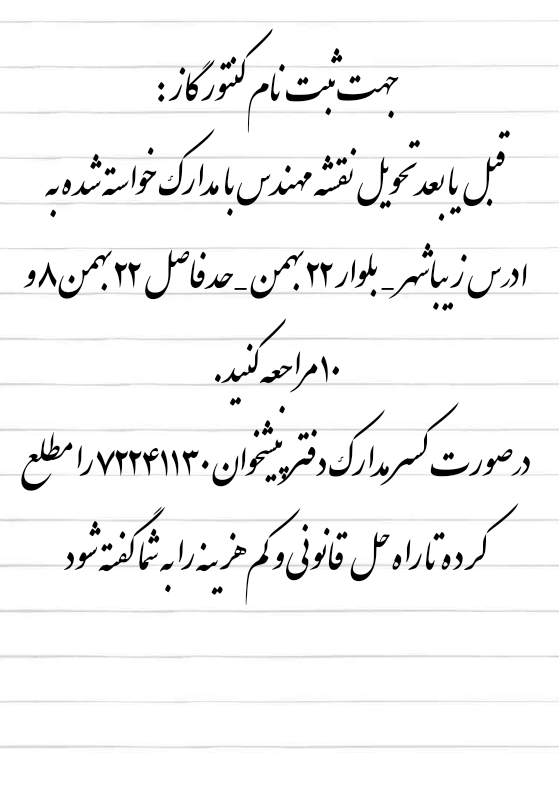 جهت ثبت نام کنتور گاز :
قبل یا بعد تحویل نقشه مهندس با مدارک خواسته شده به
ادرس زیباشهر_بلوار ۲۲ بهمن_حدفاصل ۲۲ بهمن ۸ و
۱۰ مراحعه کنید.
درصورت کسر مدارک دفتر پیشخوان ۷۲۲۴۱۱۳۰ را مطلع
کرده تا راه حل قانونی و کم هزینه را به شما گفته شود